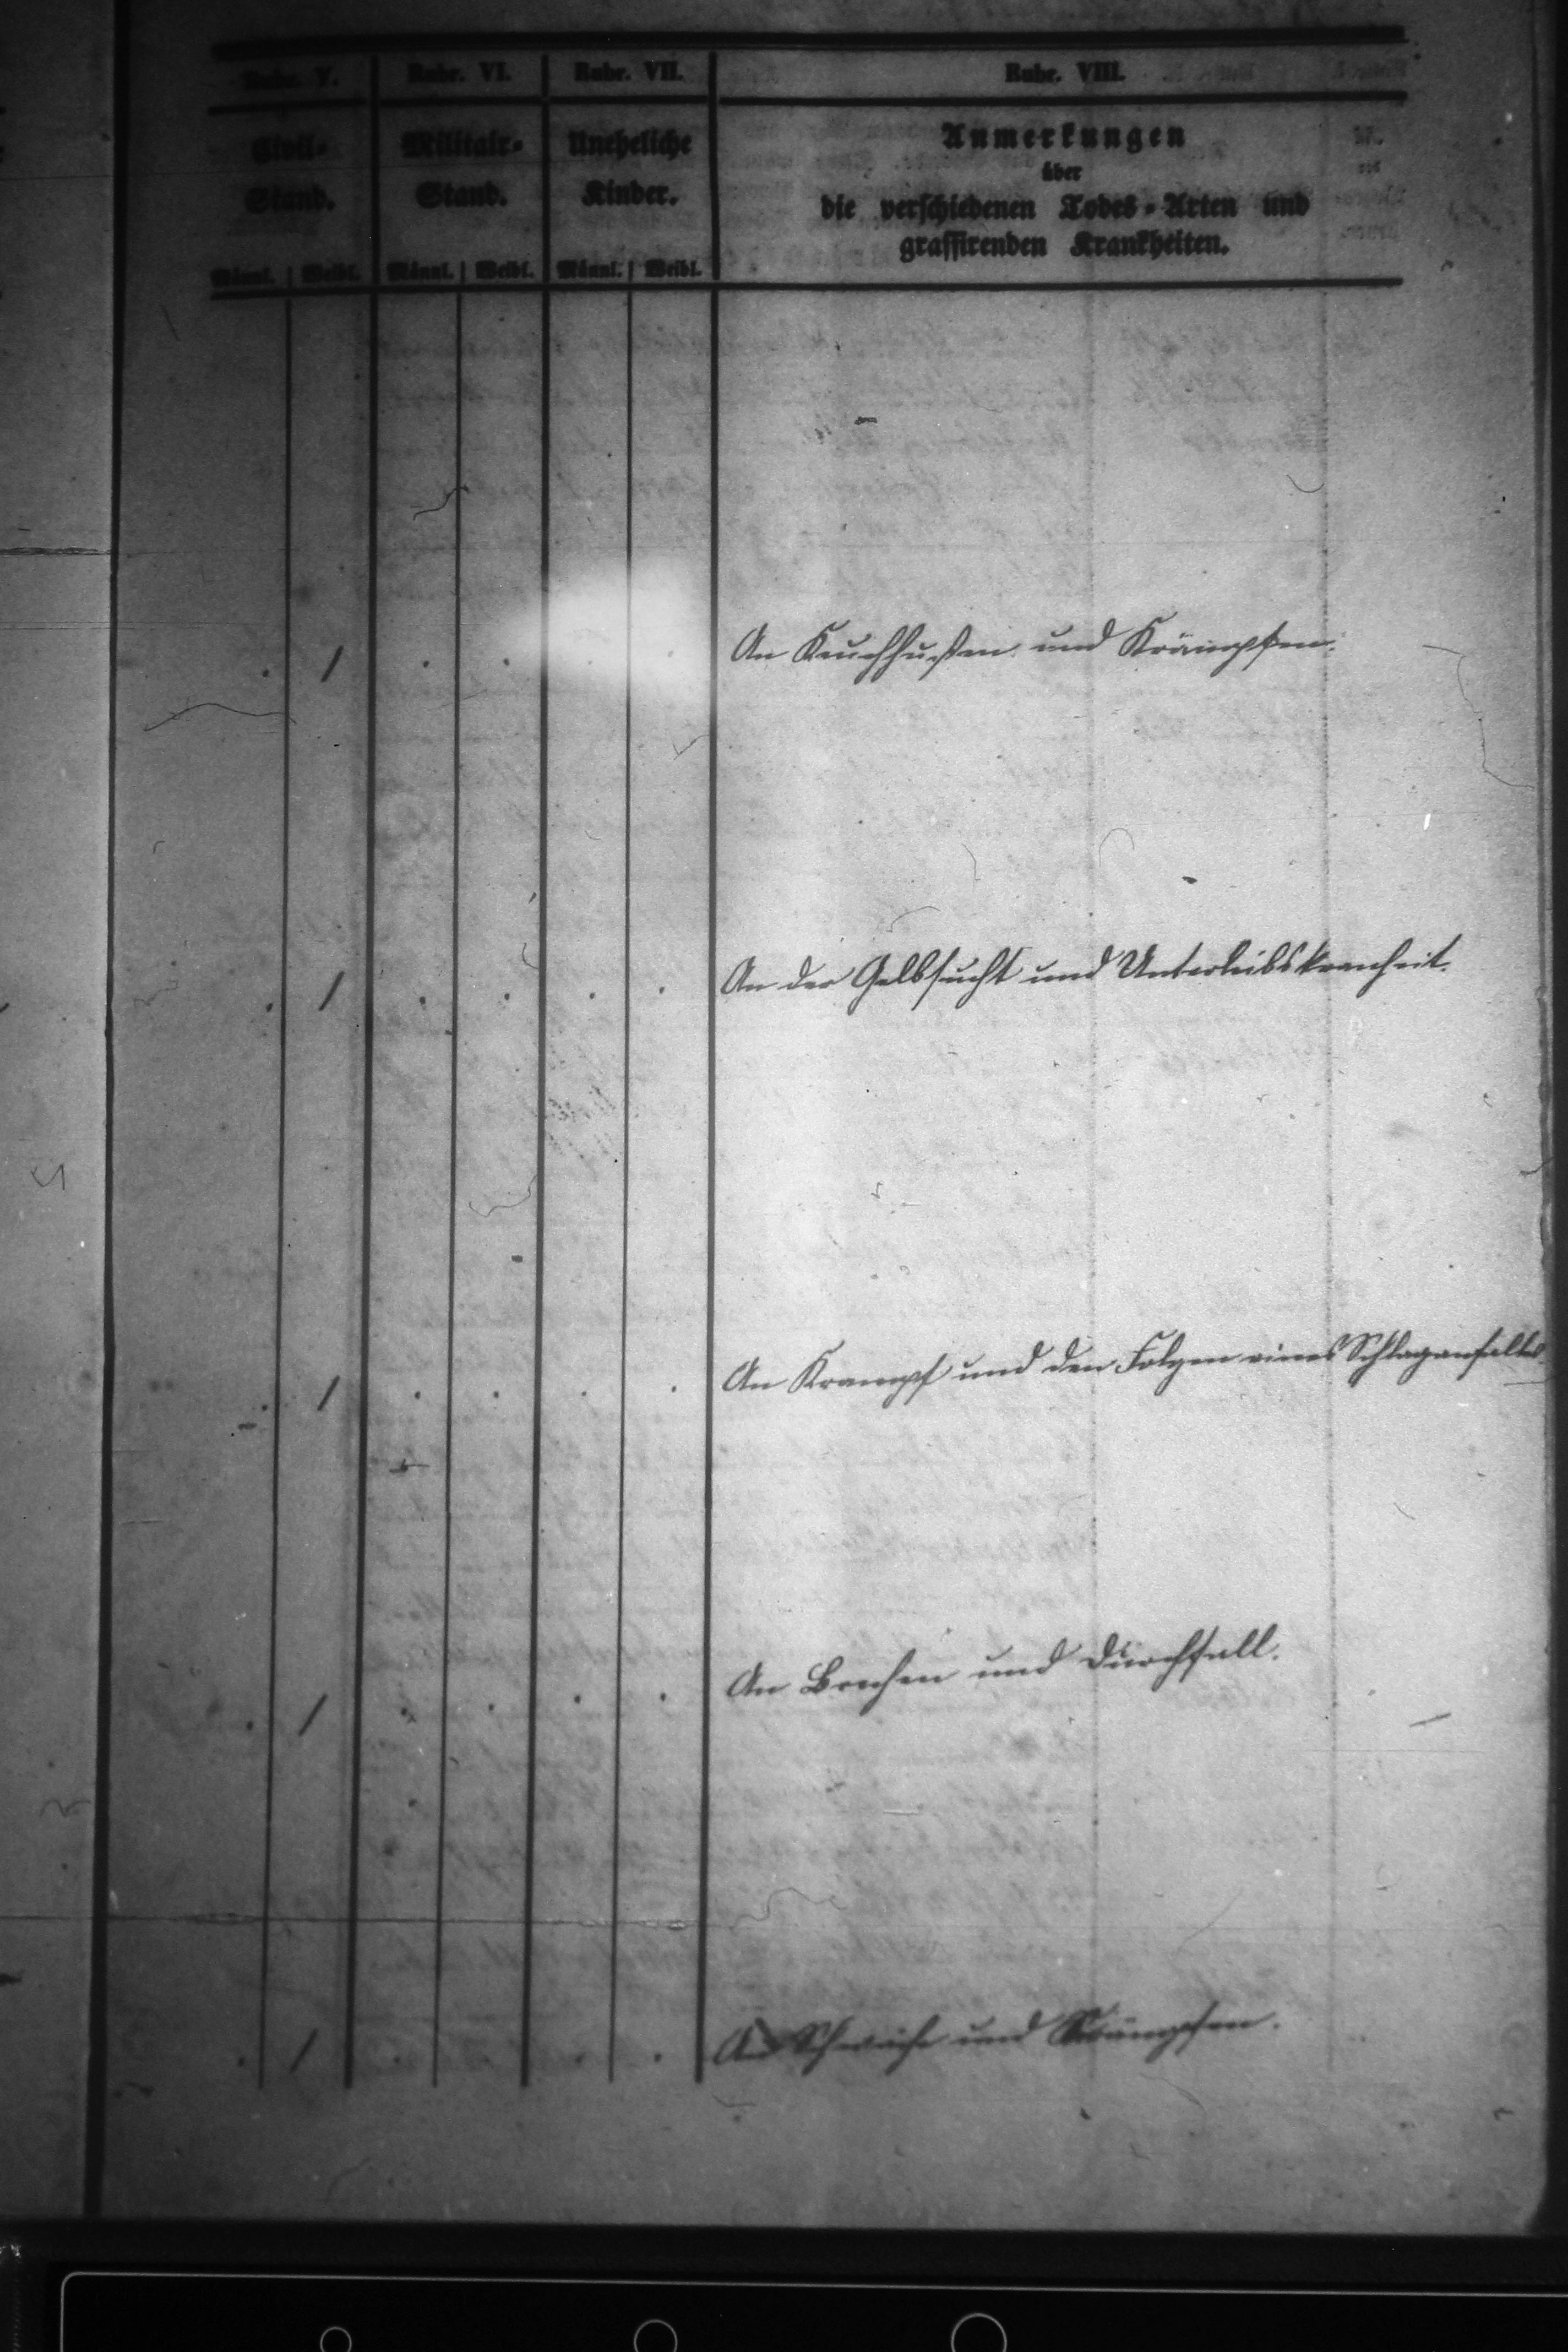 Rubr. V. Rubr. VI. Rubr. VII. Rubr. VIII.
Civil- Militair- Uneheliche Anmerkungen
über
Stand. Stand. Kinder. die verschiedenen Todes-Arten und
grassirenden Krankheiten.
Männl. Weibl. Männl. Weibl. Männl. Weibl.
. 1 . . . An Keuchhusten und Krämpfen.
. 1 . . . . An der Gelbsucht und Unterleibskrankheit.
. 1 . . . . An Krampf und den Folgen eines Schlaganfalles
. 1 . . . . An Brechen und Durchfall.
. 1 . . . An Schwäche und Krämpfen.